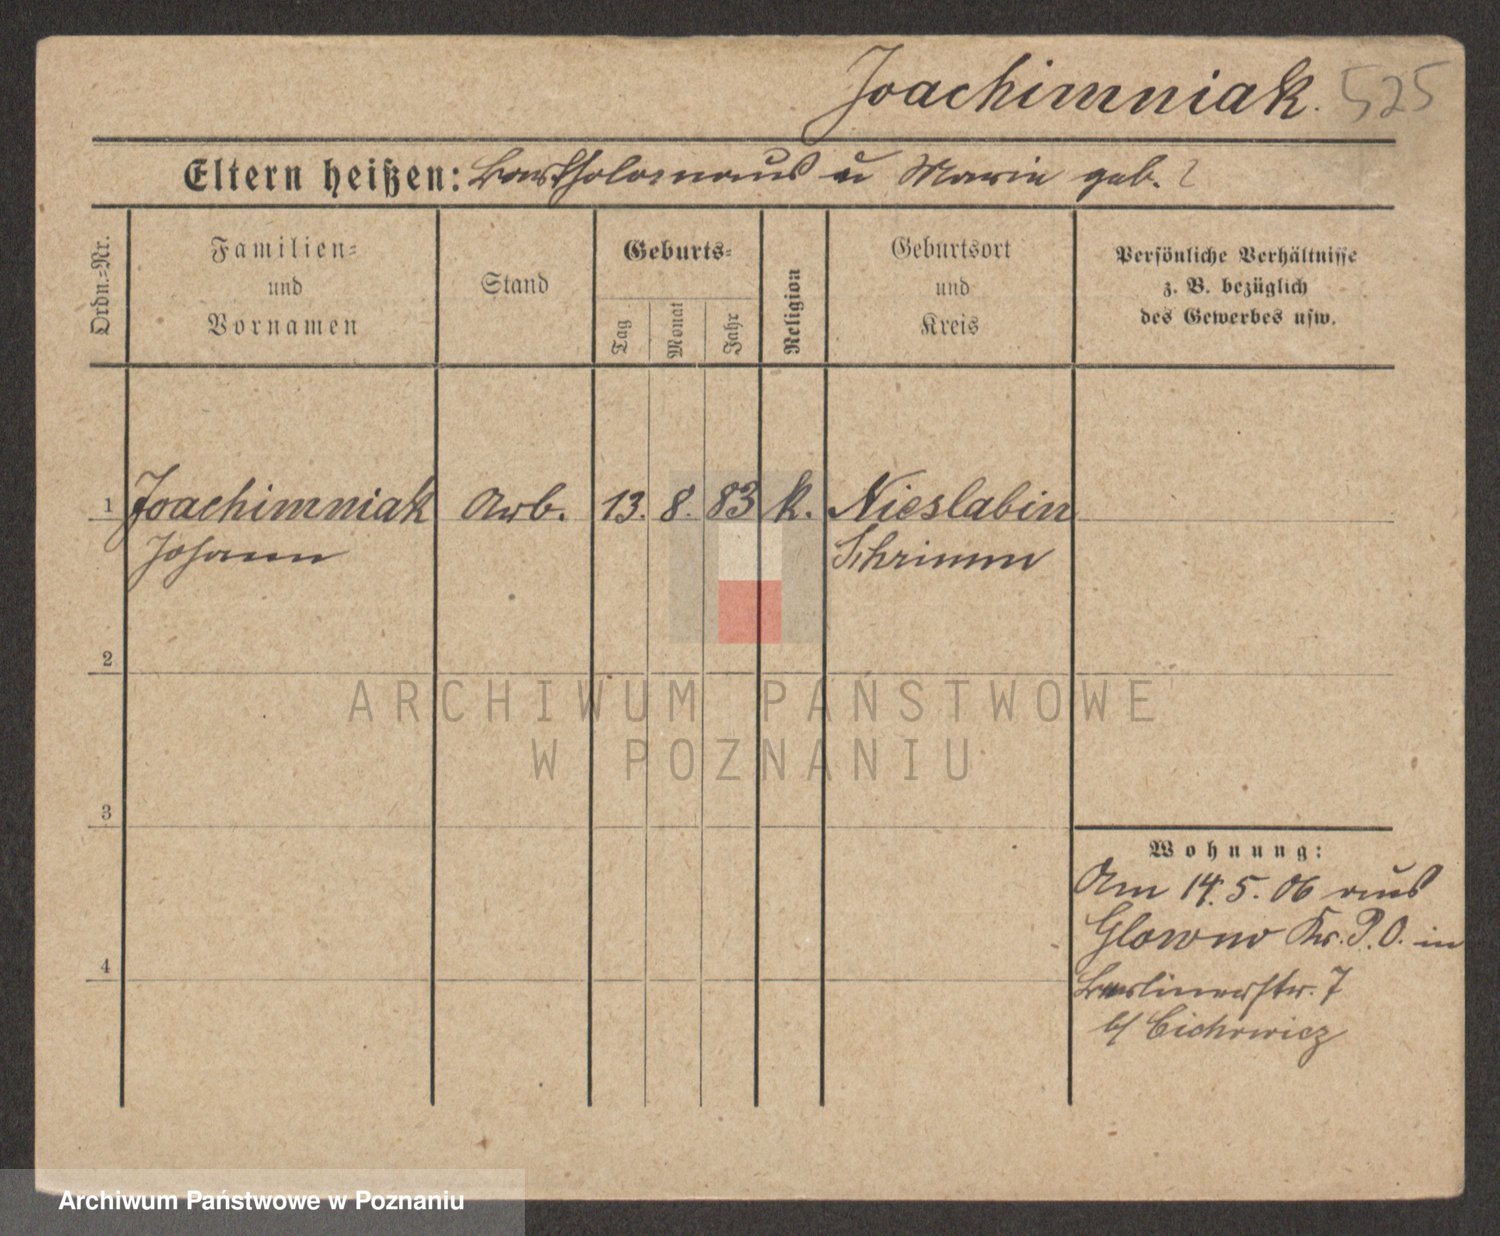 Joachimniak. 525
Eltern heißen: Bartholomäus u Marie geb. ?
Ordn.=Nr.
Familien=
und
Vornamen
Stand
Geburts=
Tag
Monat
Jahr
Religion
Geburtsort
und
Kreis
Persönliche Verhältnisse
z. B. bezüglich
des Gewerbes usw.
1 Joachimniak Arb. 13. 8. 83 k. Nieslabin
Johann Schrimm
2
3
4
Wohnung:
Am 14.5.06 aus
Glowno Kr. P.O. in
Berlinerstr. 7
b/ Cichowicz
ARCHIWUM PAŃSTWOWE
W POZNANIU
Archiwum Państwowe w Poznaniu